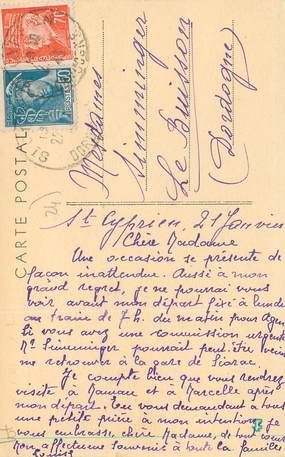 CARTE POSTALE
Mesdames
Simminger
Le Buisson
(Dordogne)
St Cyprien, 21 Janvier
Chère Madame
Une occasion se présente de
façon inattendue. Aussi à mon
grand regret, je ne pourrai vous
voir avant mon départ fixé à lundi
au train de 7h. du matin pour Agen
Si vous avez une commission urgente
Mr Simminger pourrait peut-être venir
me retrouver à la gare de Siorac.
Je compte bien que vous rendrez
visite à Maman et à Marcelle après
mon départ. En vous demandant à tous
une petite prière à mon intention, je
vous embrasse, chère Madame, de tout cœur
Mon affectueux souvenir à toute la famille